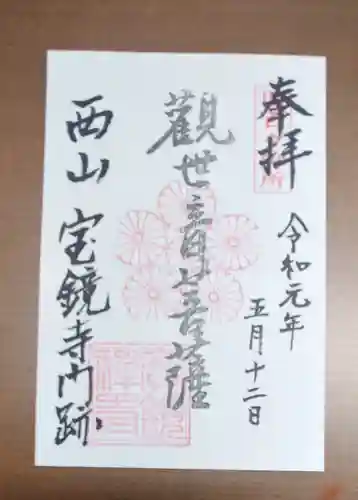 奉拝
令和元年
五月十二日
觀世音菩薩
西山 宝鏡寺門跡